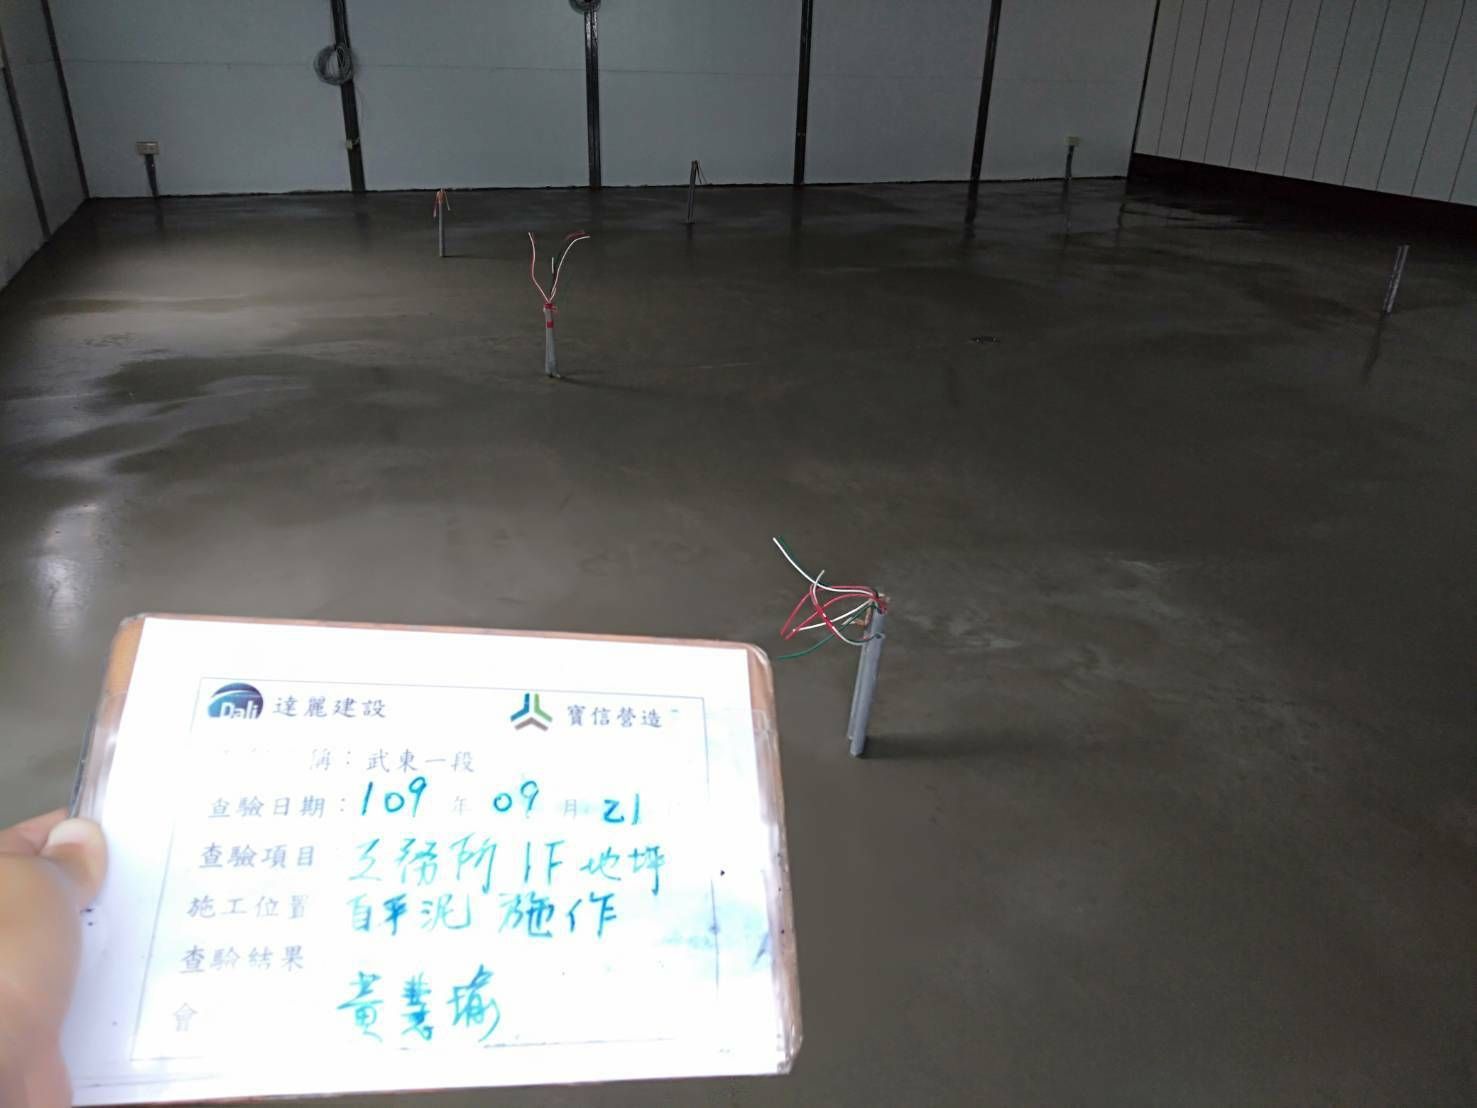 Dali 達麗建設 寶信營造
稱：武東一段
查驗日期：109 年 09 月 21
查驗項目 工務所 1F 地坪
施工位置 自平泥 施作
查驗結果
會 黃慧瑜